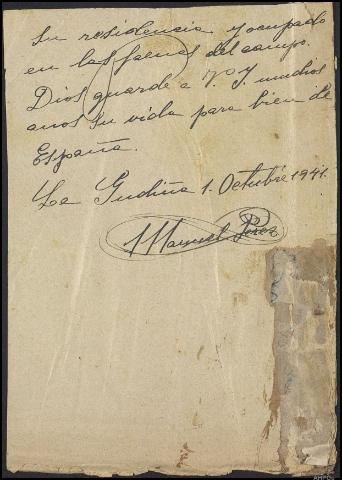 su residencia y ocupado
en las faenas del campo.
Dios guarde a V. I. muchos
anos su vida para bien de
España.
La Gudiña 1. Octubre 1941.
Manuel Perez